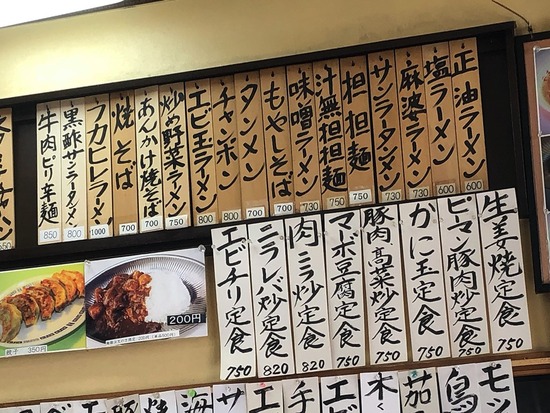 正油ラーメン 600
塩ラーメン 600
麻婆ラーメン 730
サンラータンメン 730
担担麺 750
汁無担担麺 750
味噌ラーメン 730
もやしそば 700
タンメン 700
チャンポン 800
エビ玉ラーメン 800
炒め野菜ラーメン 750
あんかけ焼そば 700
焼そば 700
フカヒレラーメン 1000
黒酢サンラータンメン 800
牛肉ピリ辛麺 850
生姜焼定食 750
ピーマン豚肉炒定食 750
かに玉定食 750
豚肉高菜炒定食 750
マーボ豆腐定食 750
肉ニラ炒定食 820
ニラレバ炒定食 820
エビチリ定食 750
餃子 350円
200円